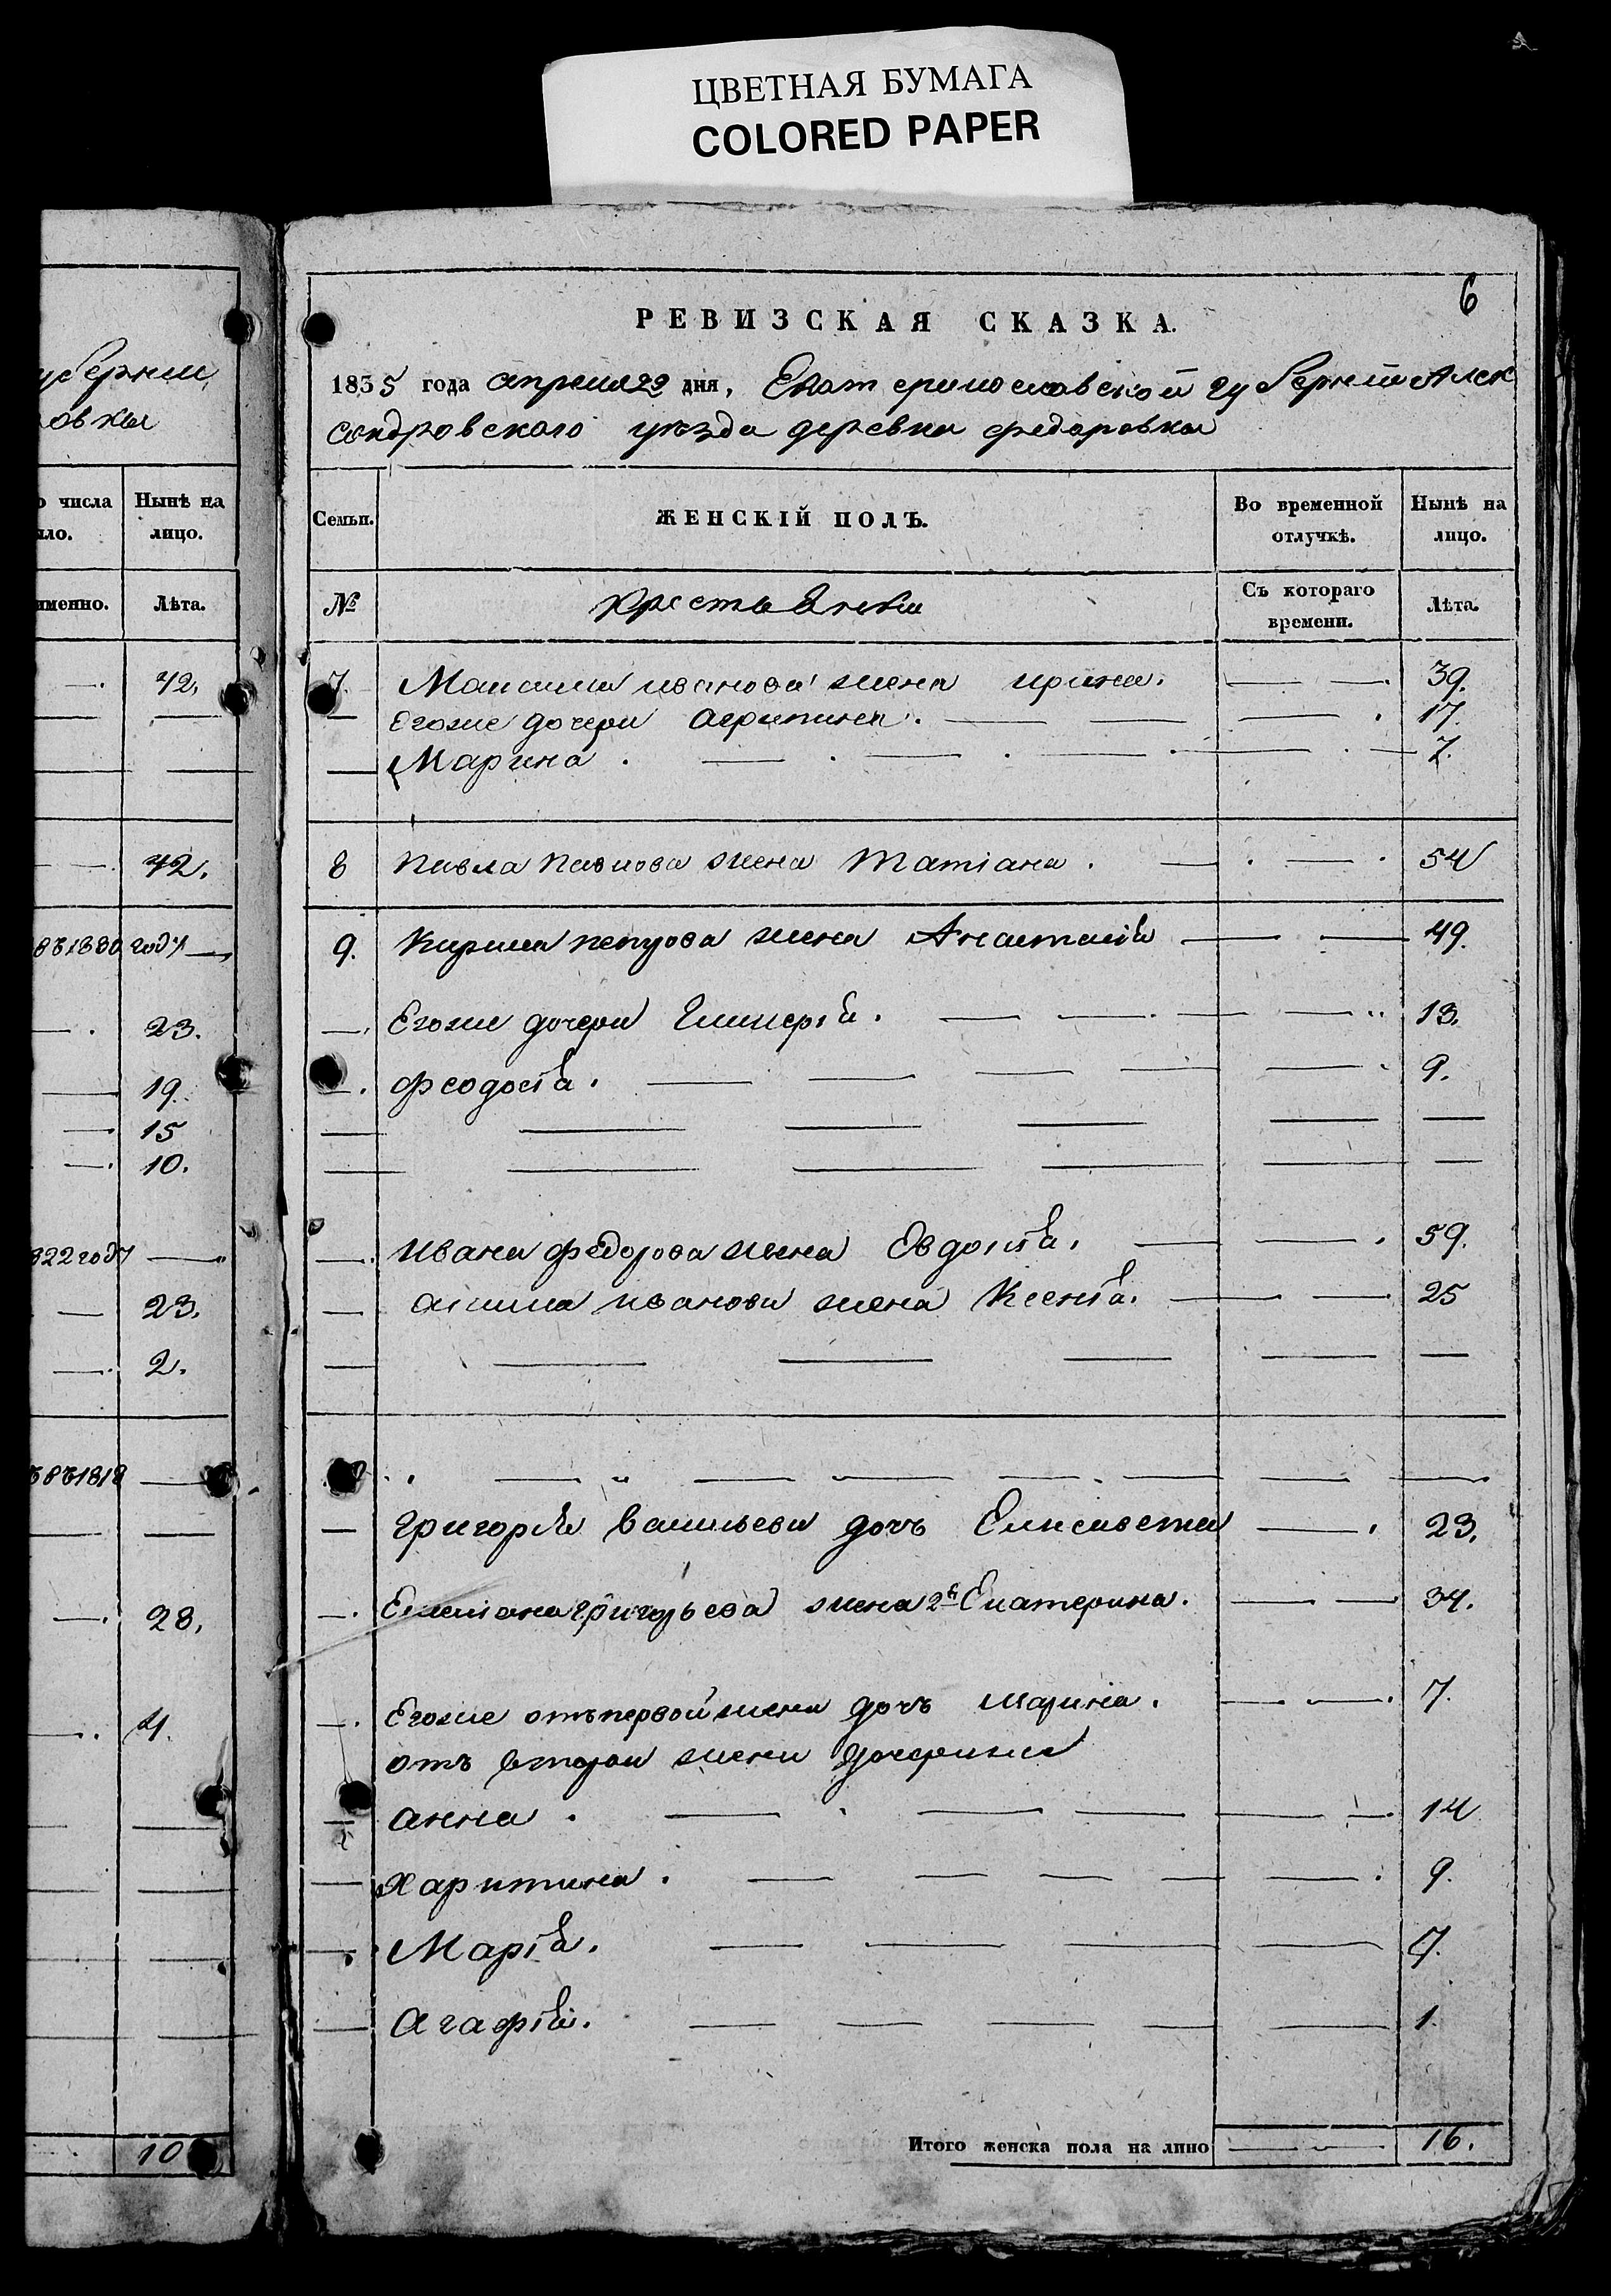 ЦВЕТНАЯ БУМАГА
COLORED PAPER
уберніи
овки
о числа
ыло.
Нынѣ на
лицо.
именно.
Лѣта.
42.
42.
1830 году
23.
19.
15
10.
822 году
23.
2.
1818
28.
4.
10
6
РЕВИЗСКАЯ СКАЗКА.
1835 года апреля 22 дня, Екатеринославской губерніи Алек
сандровского уѣзда деревни федоровки
Семьи.
ЖЕНСКІЙ ПОЛЪ.
Во временной
отлучкѣ.
Нынѣ на
лицо.
№
Крестьянки
Съ котораго
времени.
Лѣта.
7. Максима иванова жена ирина. 39.
Егоже дочери агрипина. 17.
Марина. 7.
8 Павла Павлова жена Татіана. 54
9. Кирила петрова жена Анастасія 49.
Егоже дочери Гликерія. 13.
Феодосія. 9.
Ивана федорова жена Евдокія. 59.
иванова жена Ксенія. 25
Григорія васильева дочь Елисавета 23.
Емелиана григорьева жена 2я Екатерина. 34.
Егоже отъ первой жены дочь Марина. 7.
отъ второй жены
анна. 14
Харитина. 9.
Марія. 7.
Агафія. 1.
Итого женска пола на лицо 16.